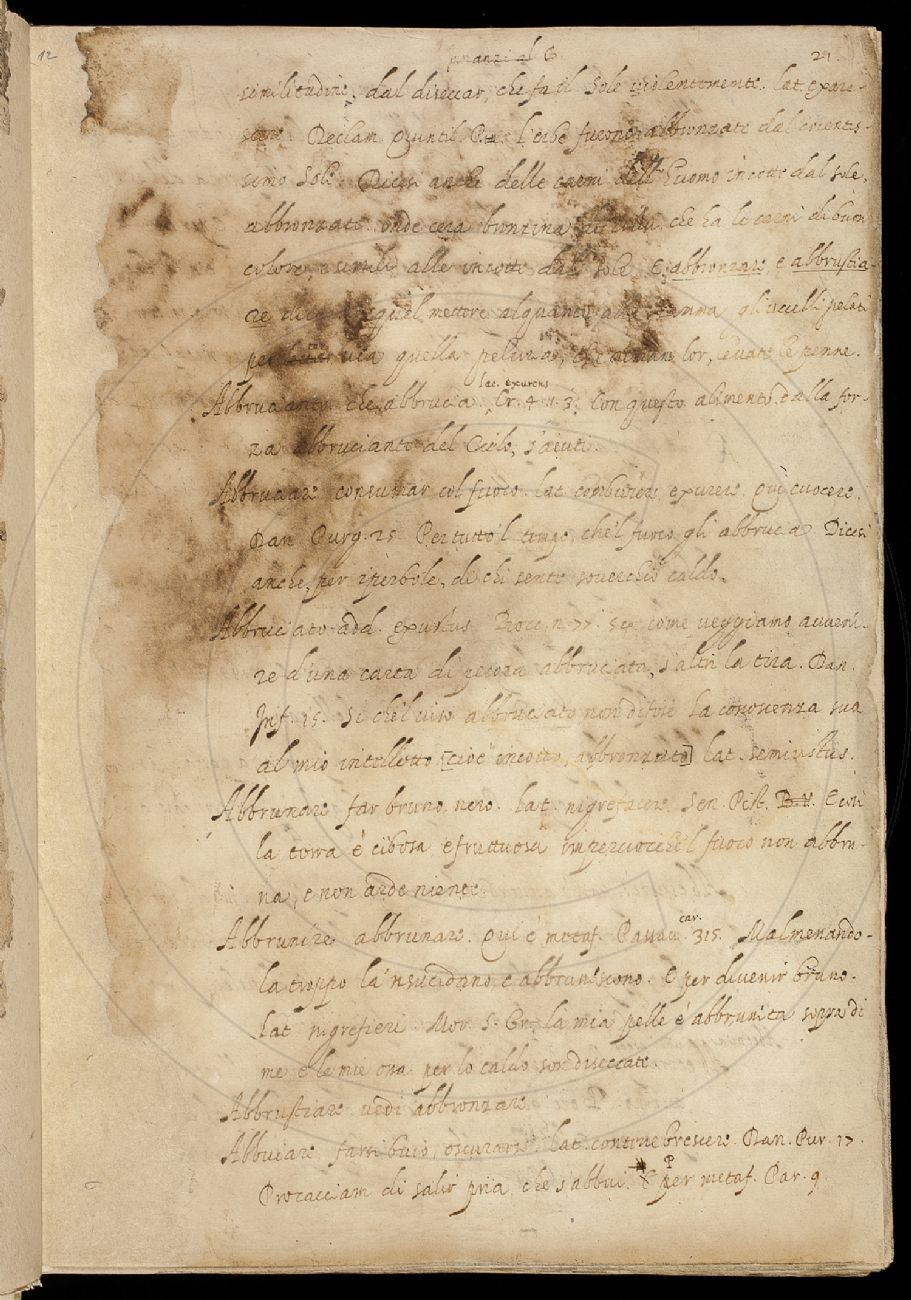 12
innanzi al G
21.
similitudine, dal diseccar, che fa il Sole violentemente. lat. exare-
scere. Declam. Quintil. P. l'erbe furono abbronzate dal cocentis-
simo Sole. Dicesi anche delle carni dell'huomo incotte dal sole,
abbronzate onde cera bronzina che ha le carni di
colore simile alle incotte dal sole. E abbronzare, e abbrustia-
re quel mettere alquanto alla fianna gli uccelli pelati
per via quella peluria, che riman lor, levate le penne.
Abbruciante che abbrucia. lat. exurens Cr. 4. 11. 3. Con questo alimento, dalla for-
za abbruciante del Cielo, s'aiuti.
Abbruciare consumar col fuoco. lat. comburere, exurere. qui cuocere.
Dan. Purg. 25. Per tutto 'l tempo, che 'l fuoco gli abbrucia. Dicesi
anche, per iperbole, di chi sente soverchio caldo.
Abbruciato add. exustus. Bocc. n. 77. 54. come veggiamo avveni-
re d'una carta di pecora abbruciata, s'altri la tira. Dan.
Inf. 15. Si che 'l viso abbruciato non difese la conoscenza sua
al mio intelletto [cioè incotto, abbronzato] lat. semiustus.
Abbrunare far bruno, nero. lat. nigrefacere. Sen. Pist. E così
la terra è cibosa e fruttuosa imperciocchè 'l fuoco non abbru-
na, e non arde niente.
Abbrunire abbrunare. Qui è metaf. Passav. car. 315. Malmenando-
la troppo la 'nsucidano e abbruniscono. E per divenir bruno.
lat. nigrefieri. Mor. S. Gr. la mia pelle è abbrunita sopra di
me e le mie ossa per lo caldo son diseccate.
Abbrustiare vedi abbronzare.
Abbuiare farsi buio, oscurare. lat. contenebrescere. Dan. Pur. 17.
Procacciam di salir pria che s'abbui. & per metaf. Par. 9.